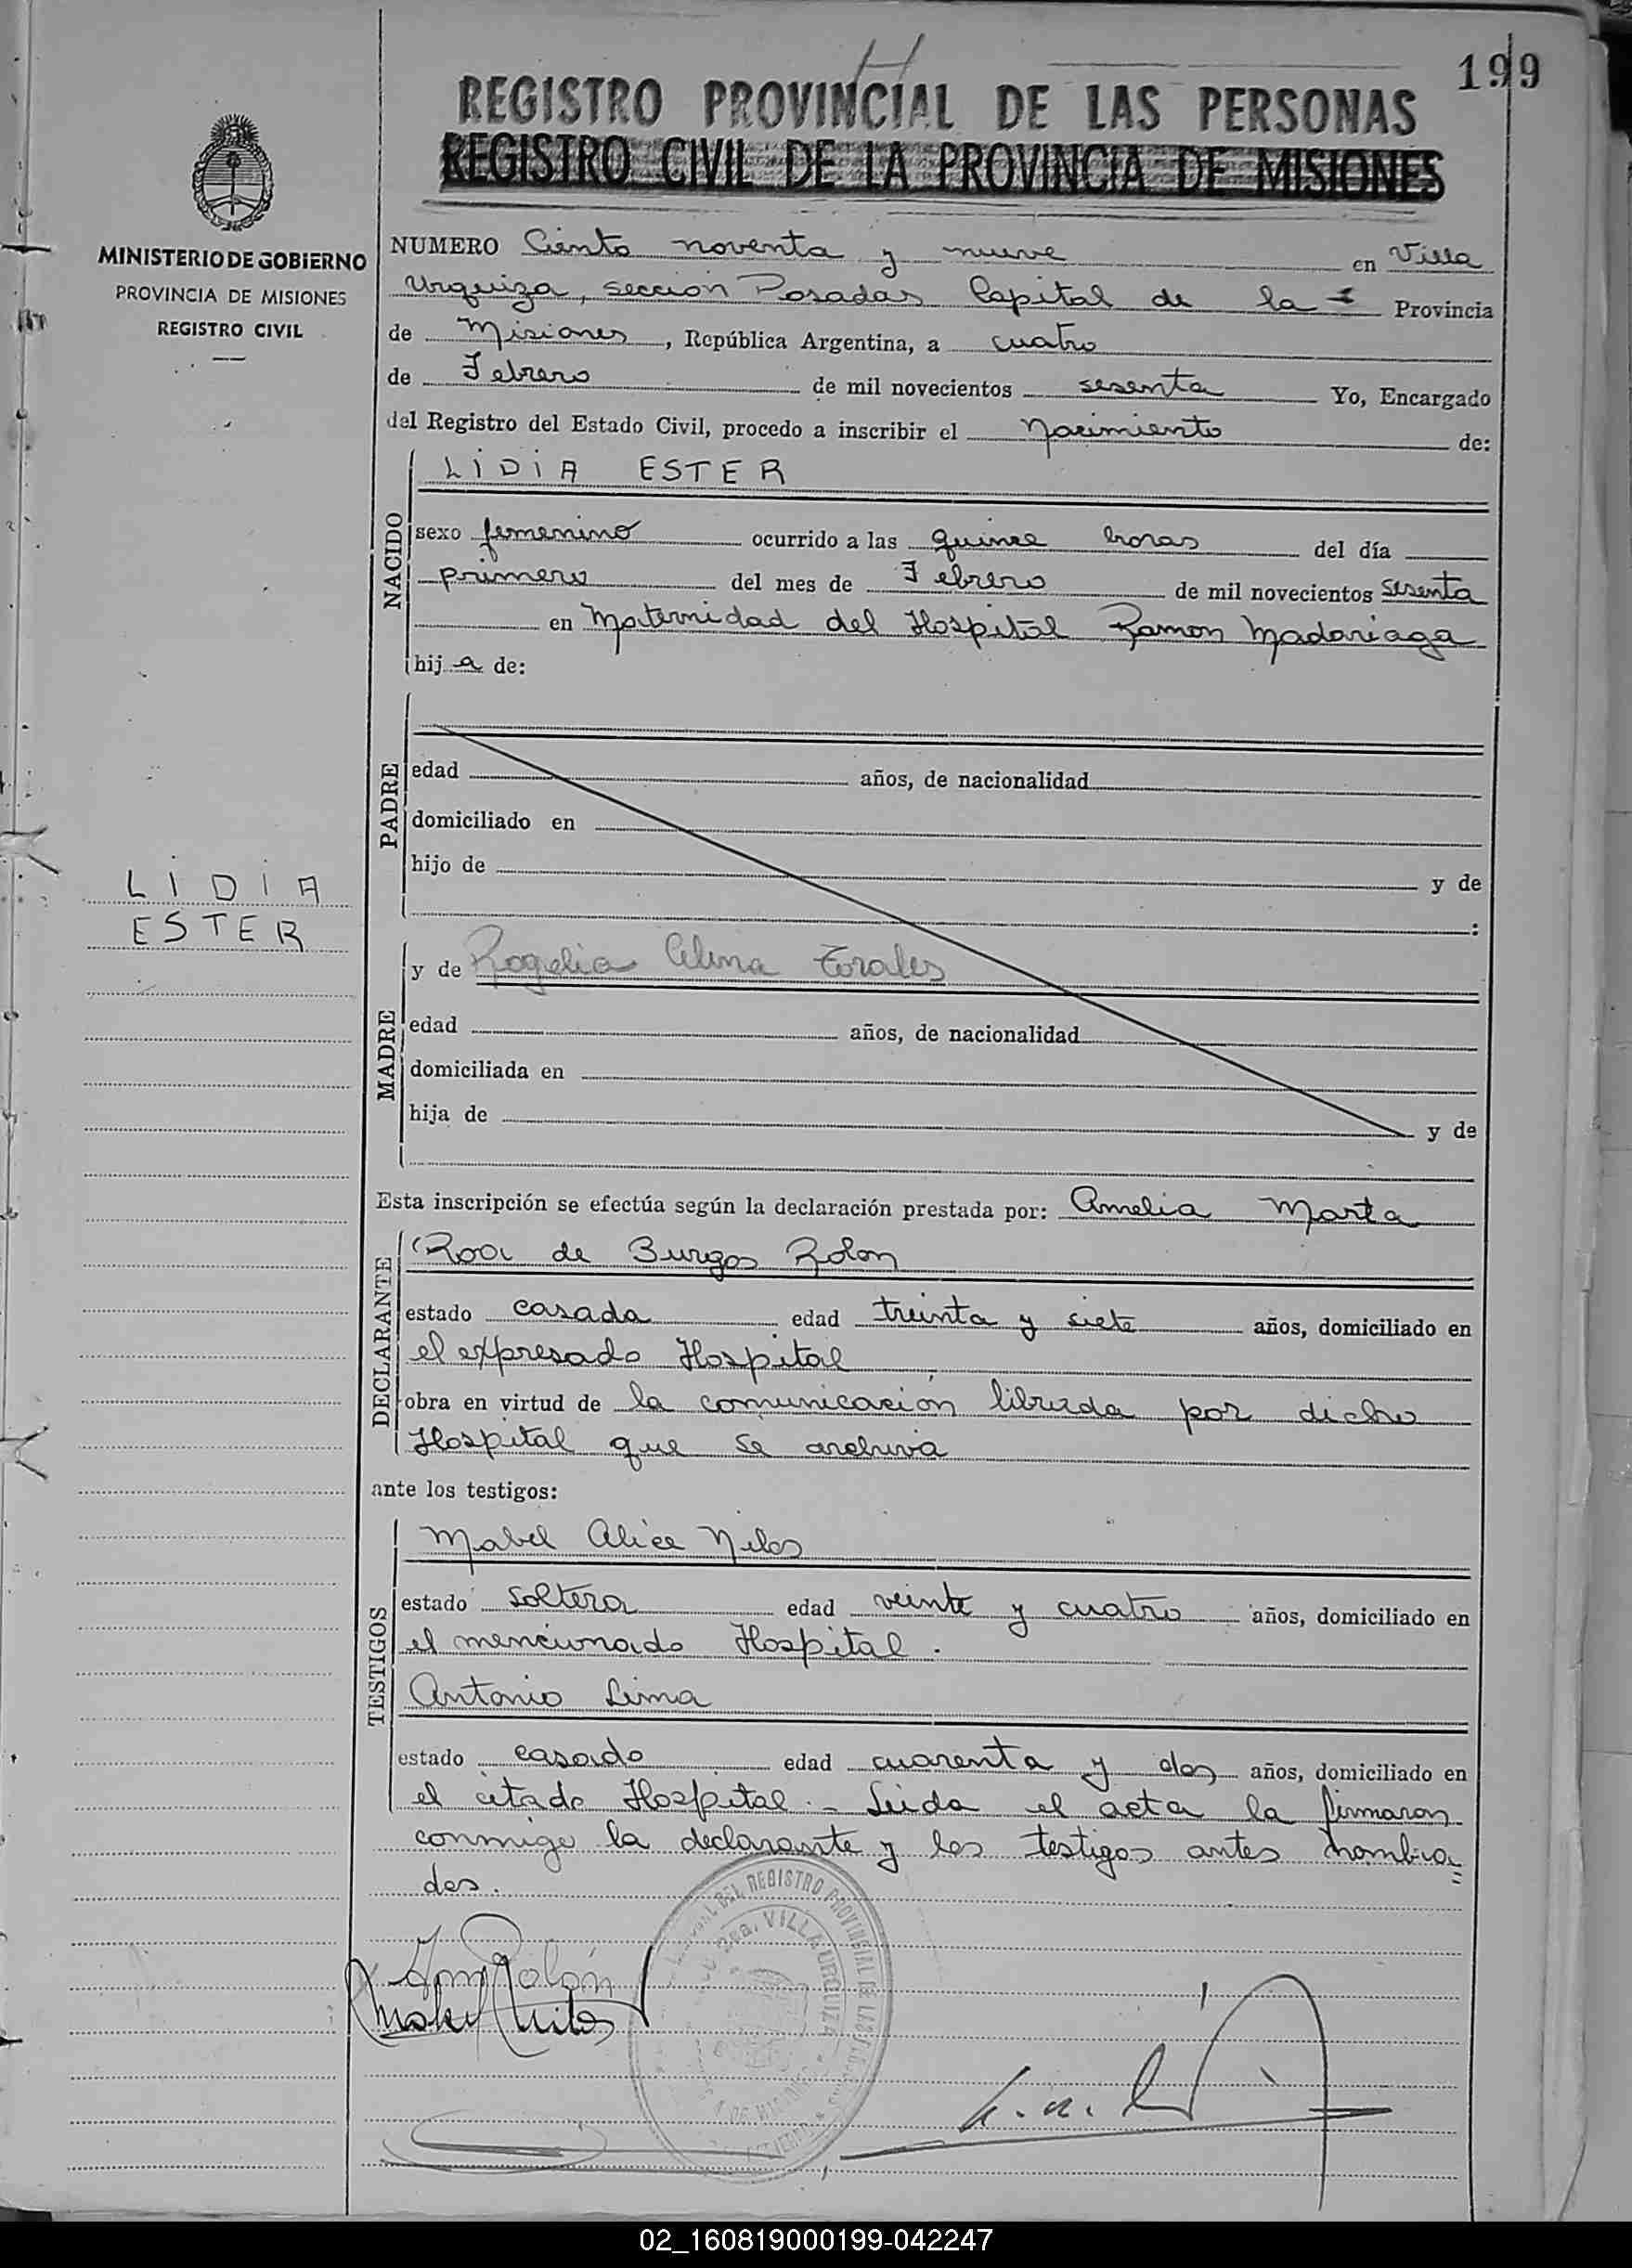 199
REGISTRO PROVINCIAL DE LAS PERSONAS
REGISTRO CIVIL DE LA PROVINCIA DE MISIONES
MINISTERIO DE GOBIERNO
PROVINCIA DE MISIONES
REGISTRO CIVIL
NUMERO Ciento noventa y nueve en Villa
Urquiza, sección Posadas Capital de la Provincia
de Misiones, República Argentina, a cuatro
de Febrero de mil novecientos sesenta Yo, Encargado
del Registro del Estado Civil, procedo a inscribir el Nacimiento de:
NACIDO
LIDIA ESTER
sexo femenino ocurrido a las quince horas del día
primero del mes de Febrero de mil novecientos sesenta
en Maternidad del Hospital Ramon Madariaga
hij a de:
PADRE
edad años, de nacionalidad
domiciliado en
hijo de y de
:
LIDIA
ESTER
MADRE
y de Rogelia Celina Torales
edad años, de nacionalidad
domiciliada en
hija de y de
Esta inscripción se efectúa según la declaración prestada por: Amelia Marta
DECLARANTE
Roa de Burgos Rolon
estado casada edad treinta y siete años, domiciliado en
el expresado Hospital
obra en virtud de la comunicación librada por dicho
Hospital que se archiva
ante los testigos:
TESTIGOS
Mabel Alice Niles
estado soltera edad veinte y cuatro años, domiciliado en
el mencionado Hospital.
Antonio Lima
estado casado edad cuarenta y dos años, domiciliado en
el citado Hospital.- Leida el acta la firmaron
conmigo la declarante y los testigos antes nombra=
dos.
VILLA URQUIZA
02_160819000199-042247